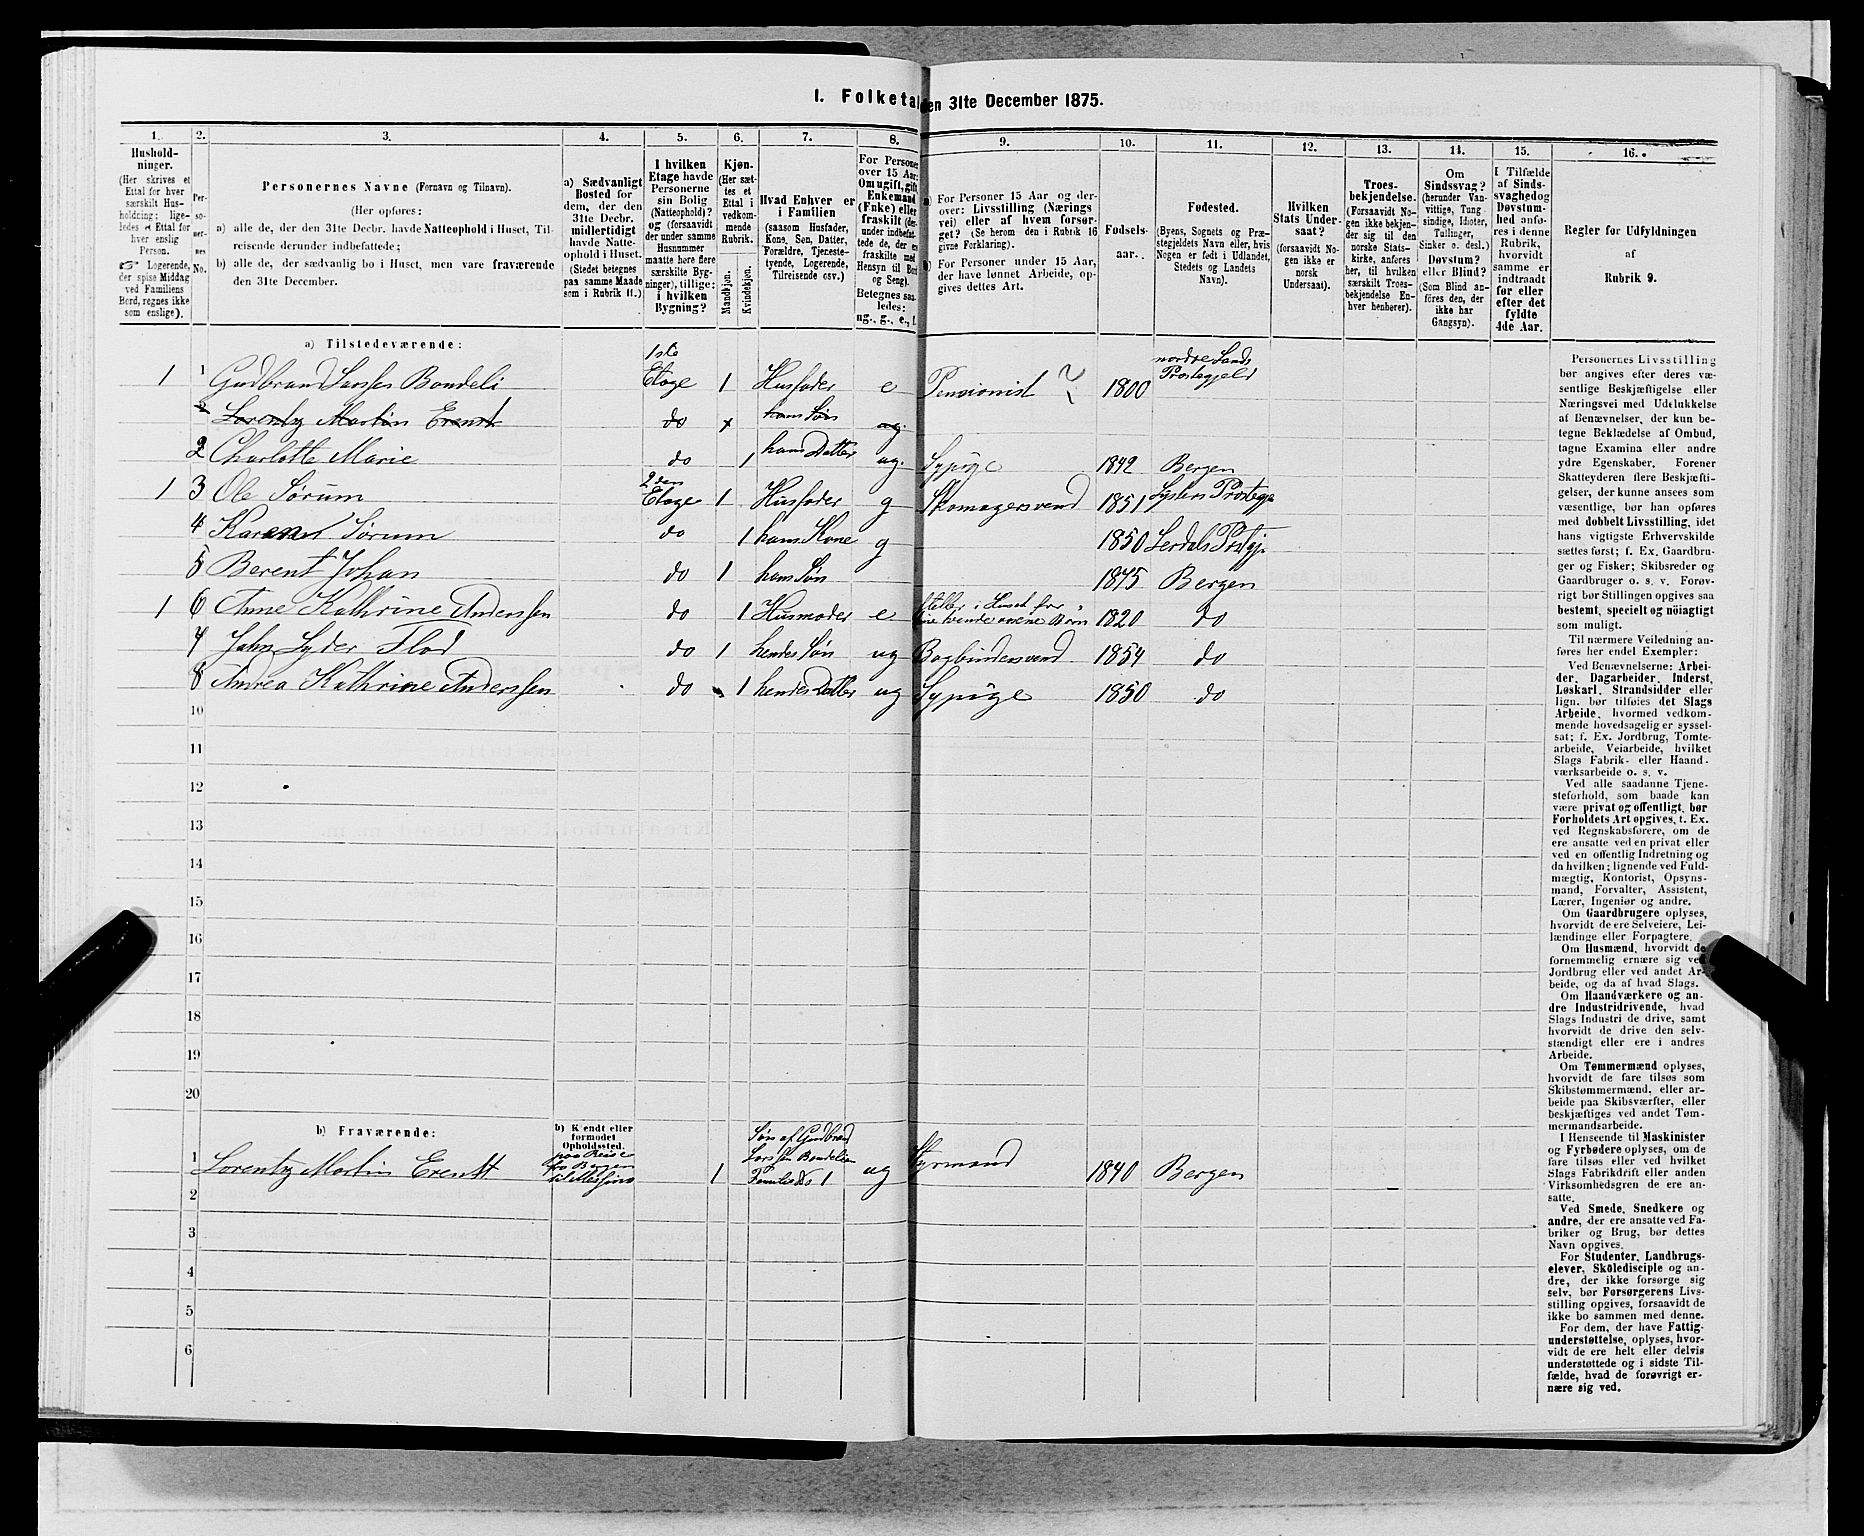 I. Folketal den 31te December 1875.
1. 2. 3. 4. 5. 6. 7. 8. 9. 10. 11. 12. 13. 14. 15. 16.
Hushold-
ninger.
(Her skrives et
Ettal for hver
særskilt Hus-
holdning; lige-
ledes et Ettal for
hver enslig
Person.
☞ Logerende,
der spise Middag
ved Familiens
Bord, regnes ikke
som enslige).
Per-
so-
ner-
nes
No.
Personernes Navne (Fornavn og Tilnavn).
(Her opføres:
a) alle de, der den 31te Decbr. havde Natteophold i Huset, Til-
reisende derunder indbefattede;
b) alle de, der sædvanlig bo i Huset, men vare fraværende
den 31te December.
a) Sædvanligt
Bosted for
dem, der den
31te Decbr.
midlertidigt
havde Natte-
ophold i Huset.
(Stedet betegnes
paa samme Maade
som i Rubrik 11.)
I hvilken
Etage havde
Personerne
sin Bolig
(Natteophold)?
og (forsaavidt
der under samme
Husnummer
maatte høre flere
særskilte Byg-
ninger), tillige:
i hvilken
Bygning?
Kjøn.
(Her sæt-
tes et
Ettal i
vedkom-
mende
Rubrik.
Mandkjøn.
Kvindekjøn.
Hvad Enhver er
i Familien
(saasom Husfader,
Kone, Søn, Datter,
Forældre, Tjeneste-
tyende, Logerende,
Tilreisende osv.)
For Personer
over 15 Aar:
Om ugift, gift,
Enkemand
(Enke) eller
fraskilt (der-
under indbefat-
tede de, der ere
fraskilte med
Hensyn til Bord
og Seng).
Betegnes saa-
ledes:
ug., g., e., f.
a) For Personer 15 Aar og der-
over: Livsstilling (Nærings
vei) eller af hvem forsør-
get? (Se herom den i Rubrik 16
givne Forklaring).
b) For Personer under 15 Aar,
der have lønnet Arbeide, op-
gives dettes Art.
Fødsels-
aar.
Fødested.
(Byens, Sognets og Præ-
stegjeldets Navn eller, hvis
Nogen er født i Udlandet,
Stedets og Landets
Navn).
Hvilken
Stats Under-
saat?
(forsaavidt No-
gen ikke er
norsk
Undersaat).
Troes-
bekjendelse.
(Forsaavidt No-
gen ikke bekjen-
der sig til den
norske Stats-
kirke, anføres
her, til hvilken
særskilt Troes-
bekjendelse En-
hver henhører).
Om
Sindssvag?
(herunder Van-
vittige, Tung
sindige, Idioter,
Tullinger,
Sinker o. desl.)
Døvstum?
eller Blind?
(Som Blind an-
føres den, der
ikke har
Gangsyn).
I Tilfælde
af Sinds-
svaghed og
Døvstum-
hed anfø-
res i denne
Rubrik,
hvorvidt
samme er
indtraadt
før eller
efter det
fyldte
4de Aar.
Regler for Udfyldningen
af
Rubrik 9.
a) Tilstedeværende:
1 1 Gudbrand Larssen Bondeli 1ste Etage 1 Husfader e Pensionist ? 1800 nordre Lands Prestegjeld
2 Lorentz Martin Erentt do hans Søn ug.
2 Charlotte Marie do 1 hans Datter ug. Sypige 1842 Bergen
1 3 Ole Sørum 2den Etage 1 Husfader g Skomagersvend 1851 Lysters Prestegj
4 Karen Sørum do 1 hans Kone g 1850 Lerdals Prstgj
5 Berent Johan do 1 hans Søn 1875 Bergen
1 6 Anne Kathrine Anderssen do 1 Husmoder e steller i Huset for sine tvende voxne Børn 1820 do
7 John Lyder Flod do 1 hendes Søn ug Bogbindersvend 1854 do
8 Andrea Kathrine Anderssen do 1 hendes Datter ug Sypige 1850 do
10
11
12
13
14
15
16
17
18
19
20
b) Fraværende:
b) Kjendt eller
formodet
Opholdssted.
1 Lorentz Martin Erentt paa Reise fra Bergen til Messina 1 Søn af Gudbrand Larssen Bondeli 1 ug Styrmand 1840 Bergen
2
3
4
5
6
Personernes Livsstilling
bør angives efter deres væ-
sentlige Beskjæftigelse eller
Næringsvei med Udelukkelse
af Benævnelser, der kun be-
tegne Beklædelse af Ombud,
tagne Examina eller andre
ydre Egenskaber. Forener
Skatteyderen flere Beskjæfti-
gelser, der kunne ansees som
væsentlige, bør han opføres
med dobbelt Livsstilling, idet
hans vigtigste Erhvervskilde
sættes først; f. Ex. Gaardbru-
ger og Fisker; Skibsreder og
Gaardbruger o. s. v. Forøv-
rigt bør Stillingen opgives saa
bestemt, specielt og nöiagtigt
som muligt.
Til nærmere Veiledning an-
føres her endel Exempler:
Ved Benævnelserne: Arbei-
der, Dagarbeider, Inderst,
Løskarl, Strandsidder eller
lign. bør tilføies det Slags
Arbeide, hvormed vedkom-
mende hovedsagelig er syssel-
sat; f. Ex. Jordbrug, Tomte-
arbeide, Veiarbeide, hvilket
Slags Fabrik- eller Haand-
værksarbeide o. s. v.
Ved alle saadanne Tjene-
steforhold, som baade kan
være privat og offentligt, bør
Forholdets Art opgives, t. Ex.
ved Regnskabsførere, om de
ere ansatte ved en privat eller
ved en offentlig Indretning og
da hvilken; lignende ved Fuld-
mægtig, Kontorist, Opsyns-
mand, Forvalter, Assistent,
Lærer, Ingeniør og andre.
Om Gaardbrugere oplyses,
hvorvidt de ere Selveiere, Lei-
lændinge eller Forpagtere.
Om Husmænd, hvorvidt de
fornemmelig ernære sig ved
Jordbrug eller ved andet Ar-
beide, og da af hvad Slags.
Om Haandværkere og an-
dre Industridrivende, hvad
Slags Industri de drive, samt
hvorvidt de drive den selv-
stændigt eller ere i andres
Arbeide.
Om Tømmermænd oplyses,
hvorvidt de fare tilsøs som
Skibstømmermænd, eller ar-
beide paa Skibsværfter, eller
beskjæftiges ved andet Tøm-
mermandsarbeide.
I Henseende til Maskinister
og Fyrbødere oplyses, om de
fare tilsøs eller ved hvilket
Slags Fabrikdrift eller anden
Virksomhedsgren de ere an-
satte.
Ved Smede, Snedkere og
andre, der ere ansatte ved Fa-
briker og Brug, bør dettes
Navn opgives.
For Studenter, Landbrugs-
elever, Skoledisciple og an-
dre, der ikke forsørge sig
selv, bør Forsørgerens Livs-
stilling opgives, forsaavidt de
ikke bo sammen med denne.
For dem, der have Fattig-
understøttelse, oplyses, hvor-
vidt de ere helt eller delvis
understøttede og i sidste Til-
fælde, hvad de forøvrigt er-
nære sig ved.